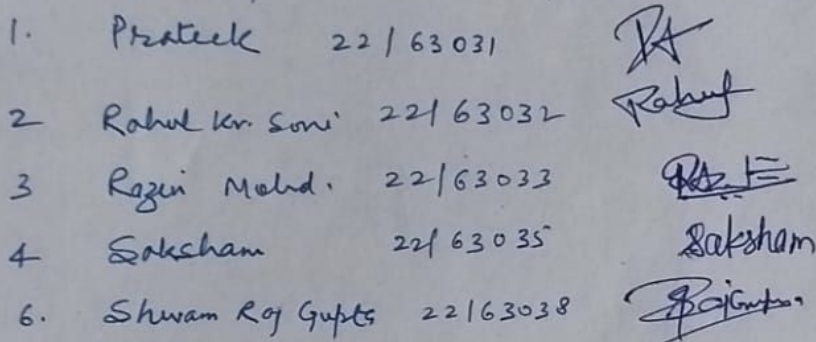 1. Prateek 22/63031
2 Rahul Kr. Soni 22/63032 Rahul
3 Razin Mohd. 22/63033
4 Saksham 22/63035 Saksham
6. Shivam Raj Gupta 22/63038 RajGupta